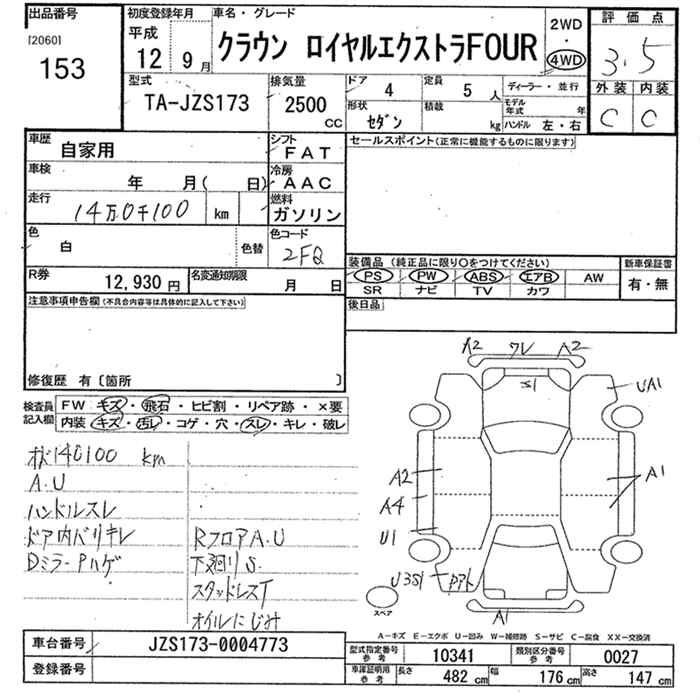 出品番号 初度登録年月 車名・グレード 2WD 評価点
[2060] 平成 ・
153 12 9月 クラウン ロイヤルエクストラFOUR 4WD 3.5
型式 排気量 ドア 4 定員 5人 ディーラー・並行 外装 内装
TA-JZS173 2500 CC 形状 セダン 積載 kg モデル年式 年 C C
ハンドル 左・右
車歴 自家用 シフト FAT セールスポイント(正常に機能するものに限ります)
車検 年 月( 日) 冷房 AAC
走行 14万0千100 km 燃料 ガソリン
色 白 色替 色コード 2FQ
装備品 (純正品に限り○をつけてください) 新車保証書
R券 12,930円 名変通知期限 月 日 PS PW ABS エアB AW 有・無
SR ナビ TV カワ
注意事項申告欄(不具合内容等は具体的に記入して下さい) 後日品
修復歴 有〔箇所 〕
検査員記入欄 FW キズ・飛石・ヒビ割・リペア跡・×要
内装 キズ・汚レ・コゲ・穴・スレ・キレ・破レ
A2 ワレ A2
S1
UA1
140100 km
A.U
ハンドルスレ
ドア内バリキレ
Dミラー Pハゲ
RフロアA.U
下廻りS
スタッドレスT
オイルにじみ
A2
A4
U1
A1
U3S1
A1
スペア
A-キズ E-エクボ U-凹み W-補修跡 S-サビ C-腐食 XX-交換済
車台番号 JZS173-0004773 型式指定番号 参考 10341 類別区分番号 参考 0027
登録番号 車庫証明用 参考 長さ 482 cm 幅 176 cm 高さ 147 cm